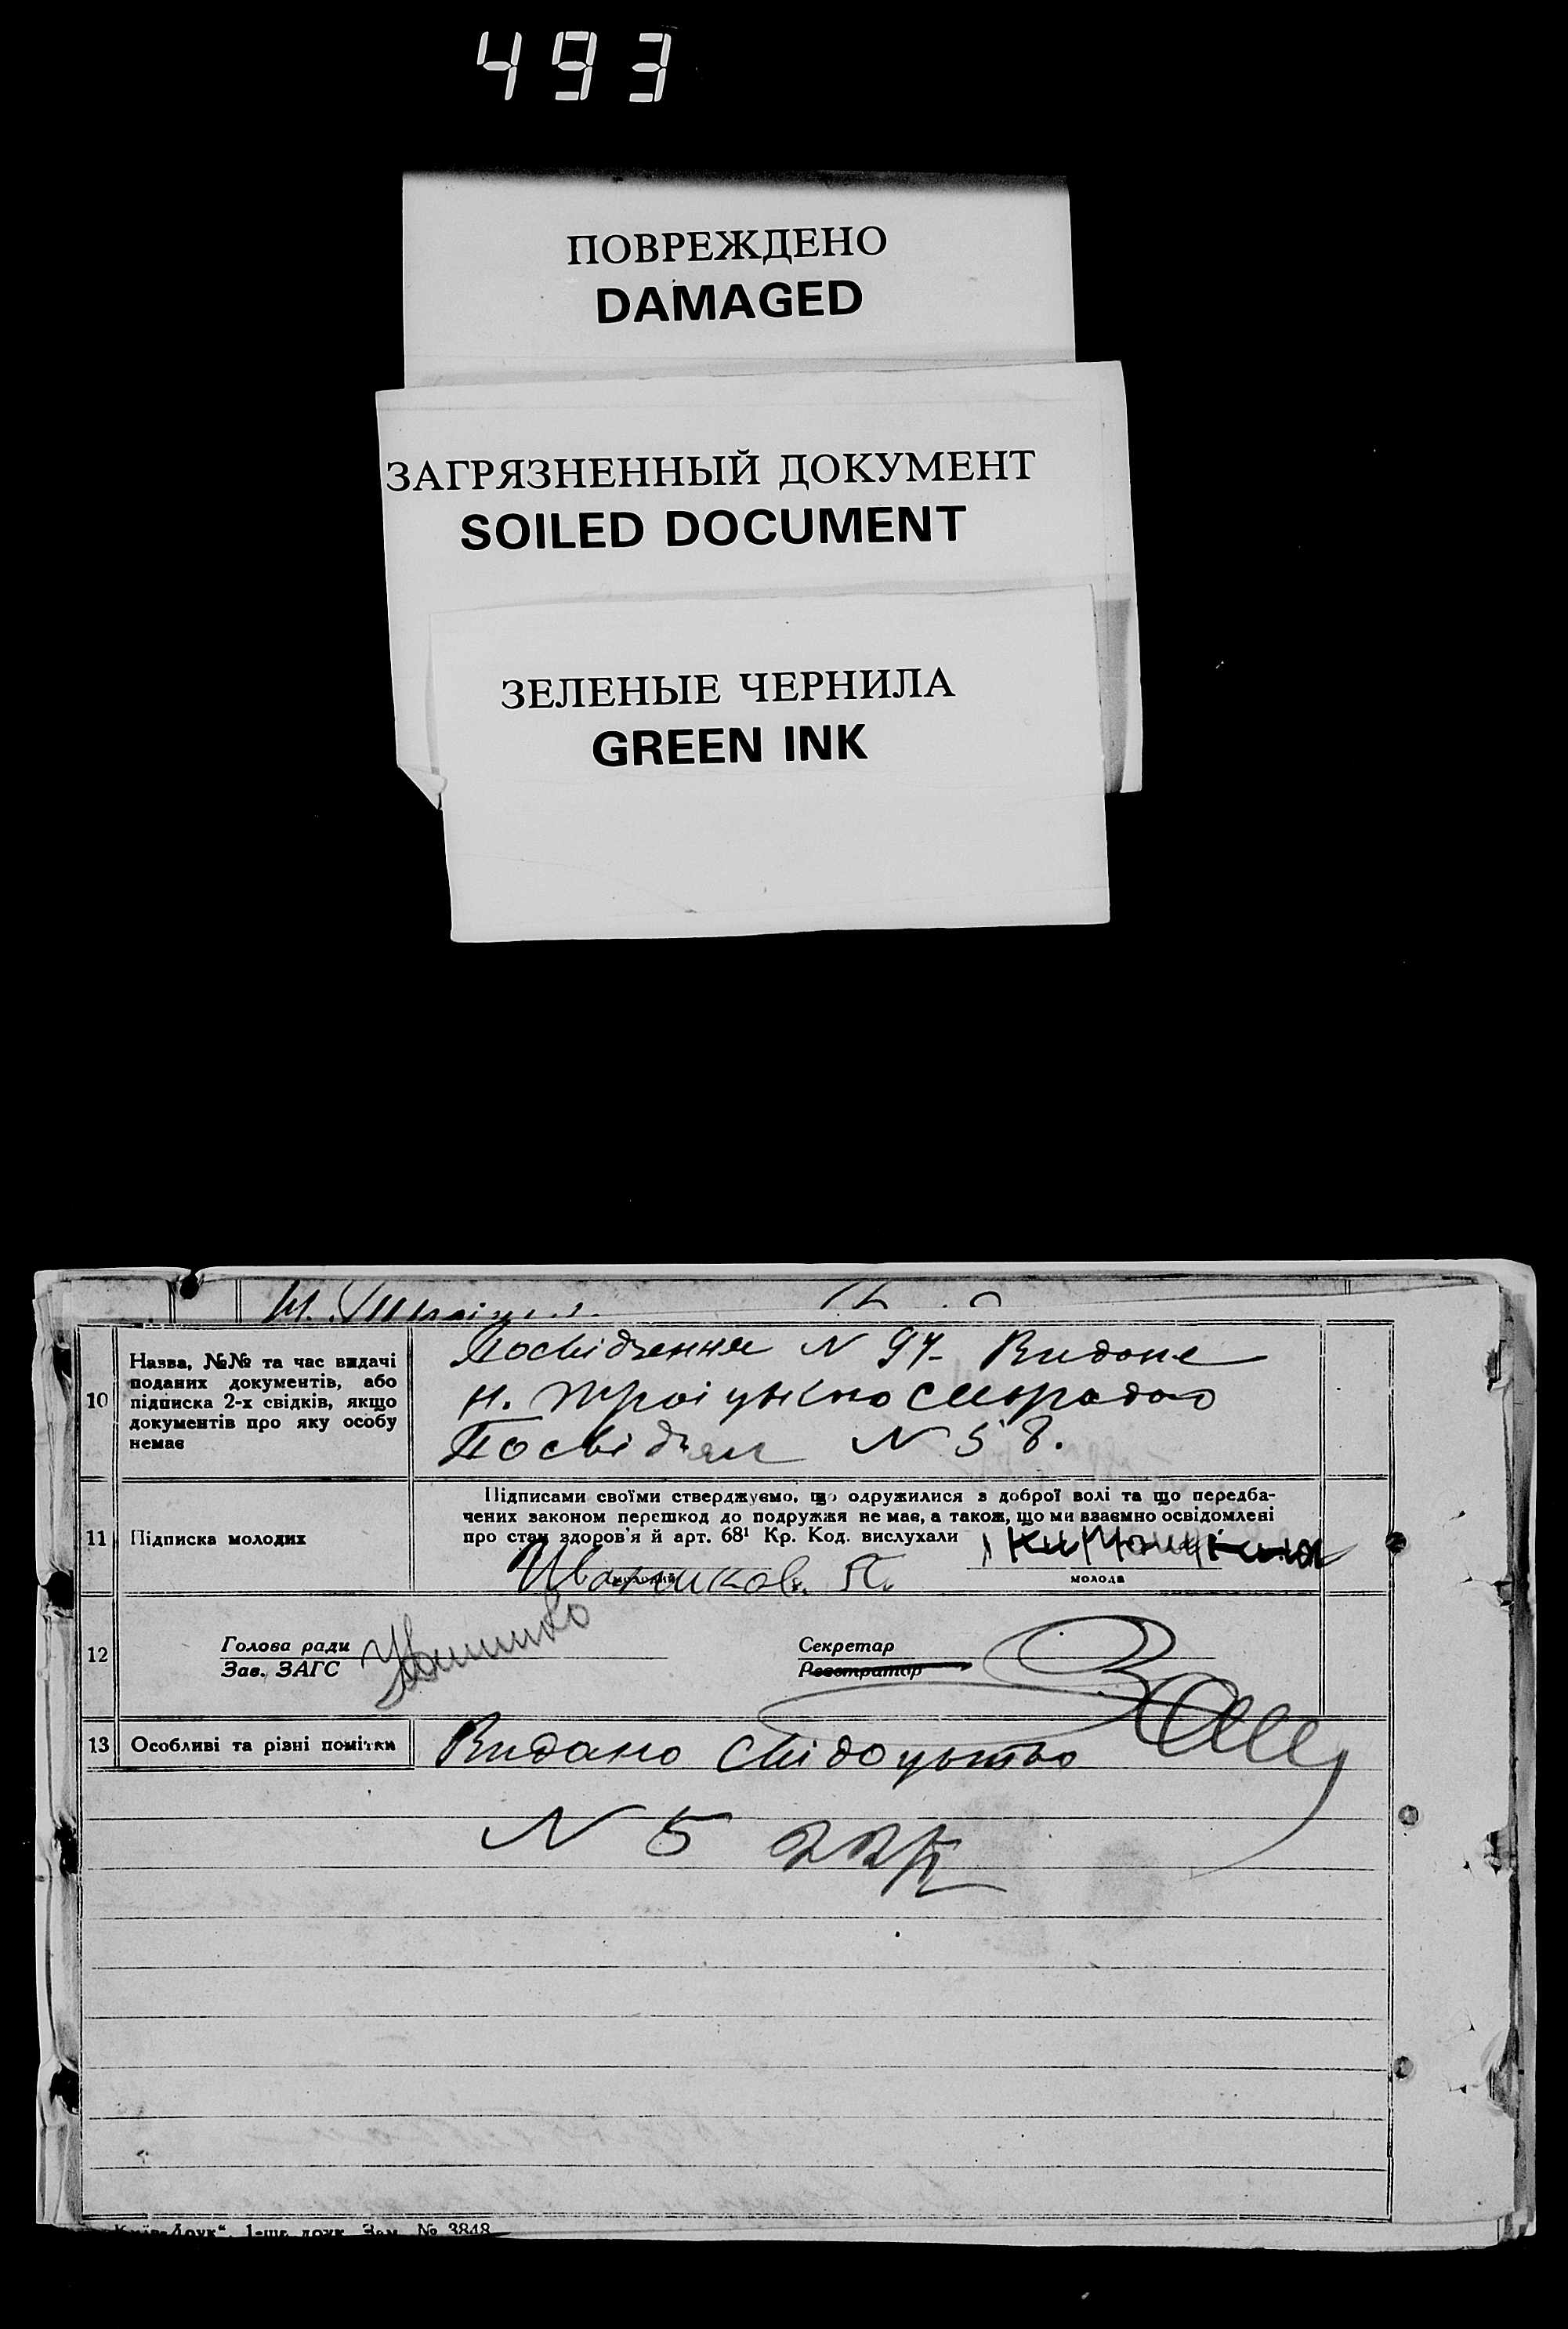 493
ПОВРЕЖДЕНО
DAMAGED
ЗАГРЯЗНЕННЫЙ ДОКУМЕНТ
SOILED DOCUMENT
ЗЕЛЕНЫЕ ЧЕРНИЛА
GREEN INK
10
Назва, №№ та час видачі
поданих документів, або
підписка 2-х свідків, якщо
документів про яку особу
немає
Посвідчення N 97- Видане
Посвідчен N 58.
11
Підписка молодих
Підписами своїми стверджуємо, що одружилися з доброї волі та що передба-
чених законом перешкод до подружжя не має, а також, що ми взаємно освідомлені
про стан здоров'я й арт. 68¹ Кр. Код. вислухали
молода
12
Голова ради
Зав. ЗАГС
Секретар
Реєстратор
13
Особливі та різні помітки
Видано свідоцтво
N 5
Друк“. 1-ша друк. Зам. № 3848